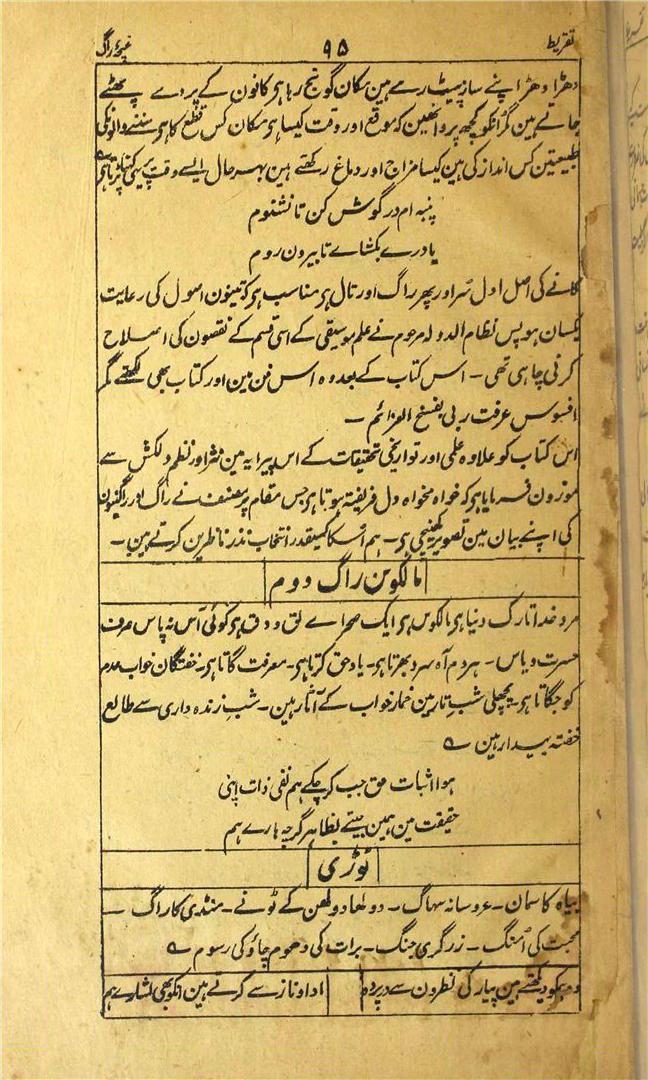 تقریظ ۹۵ غنچۂ راگ
دھڑا دھڑ اپنے ساز پیٹ رہے ہین مکان گونج رہا ہی کانون کے پردے پھٹے
جاتے ہین مگر انکو کچھ پروا نھین کہ موقع اور وقت کیسا ہی مکان کس قطع کا ہی سننے والونکی
طبیعتین کس انداز کی ہین کیسا مزاج اور دماغ رکھتے ہین بہر حال ایسے وقت پر یہی کہنا پڑتا ہی
پنبہ ام در گوش کن تا نشنوم
یا درے بکشاے تا بیرون روم
گانے کی اصل اول سُر اور پھر راگ اور تال ہی مناسب ہی کہ تینون اصول کی رعایت
یکسان ہو پس نظام الدولہ مرحوم نے علم موسیقی کے اسی قسم کے نقصون کی اصلاح
کرنی چاہی تھی - اس کتاب کے بعد وہ اس فن مین اور کتاب بھی لکھتے مگر
افسوس عرفت ربی بفسخ العزائم -
اس کتاب کو علاوہ علمی اور تواریخی تحقیقات کے اس پیرایہ مین نثر اور نظم دلکش سے
موزون فرمایا ہی کہ خواہ مخواہ دل فریفتہ ہوتا ہی جس مقام پر مصنف نے راگ اور راگنیون
کی اپنے بیان مین تصویر کھینچی ہی - ہم اسکا کسیقدر انتخاب نذر ناظرین کرتے ہین -
مالکوس راگ دوم
مرد خدا تارک دنیا ہی مالکوس ہی ایک صحراے لق و دق ہی کوئی آس نہ پاس صرف
حسرت و یاس - ہر دم آہ سرد بھرتا ہی - یاد حق کرتا ہی - معرفت گاتا ہی - خفتگان خواب عدم
کو جگاتا ہی - پچھلی شب تار مین خمار خواب کے آثار ہین - شب زندہ داری سے طالع
خفتہ بیدار ہین ؎
ہوا اثبات حق جب کر چکے ہم نفی ذات اپنی
حقیقت مین ہمین جیتے بظاہر گرچہ ہارے ہم
ٹوڑی
بیاہ کا سمان - عروسانہ سہاگ - دولھا دولھن کے ٹونے - منڈھی کا راگ -
محبت کی اُمنگ - زرگری جنگ - برات کی دھوم چاؤ کی رسوم ؎
وہ ہمکو دیکھتے ہین پیار کی نظرون سے در پردہ ادا و ناز سے کرتے ہین انکو بھی اشارے ہم